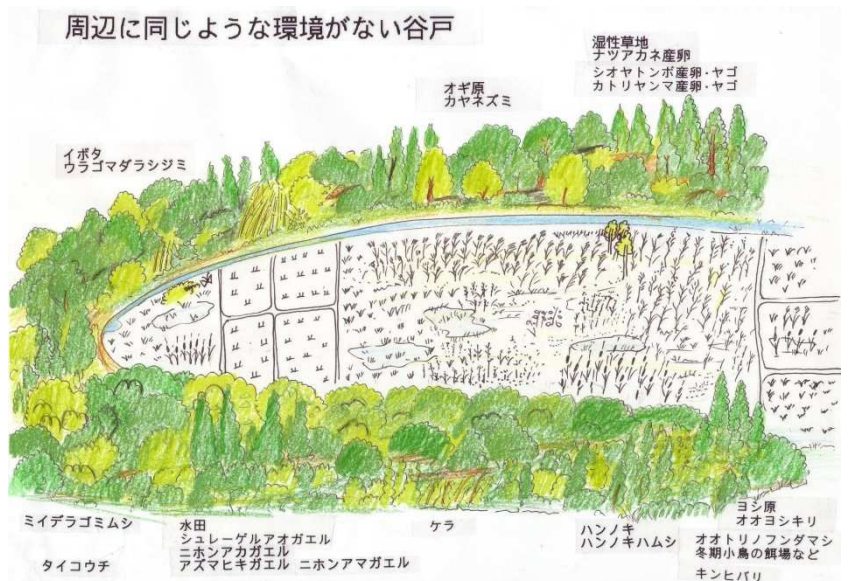 周辺に同じような環境がない谷戸
湿性草地
ナツアカネ産卵
シオヤトンボ産卵・ヤゴ
カトリヤンマ産卵・ヤゴ
オギ原
カヤネズミ
イボタ
ウラゴマダラシジミ
ミイデラゴミムシ
タイコウチ
水田
シュレーゲルアオガエル
ニホンアカガエル
アズマヒキガエル ニホンアマガエル
ケラ
ハンノキ
ハンノキハムシ
ヨシ原
オオヨシキリ
オオトリノフンダマシ
冬期小鳥の餌場など
キンヒバリ